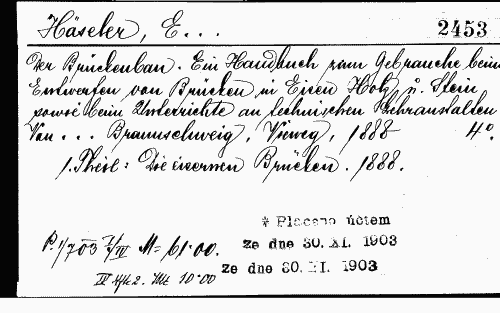 Häseler, E... 2453
Der Brückenbau. Ein Handbuch zum Gebrauche beim
Entwerfen von Brücken in Eisen Holz u. Stein
sowie beim Unterrichte an technischen Lehranstalten
Von... Braunschweig, Vieweg, 1888 4°.
1. Theil: Die eisernen Brücken. 1888.
* Placeno účtem
ze dne 30. XI. 1903
ze dne 30. XI. 1903
M= 61·00.
10·00